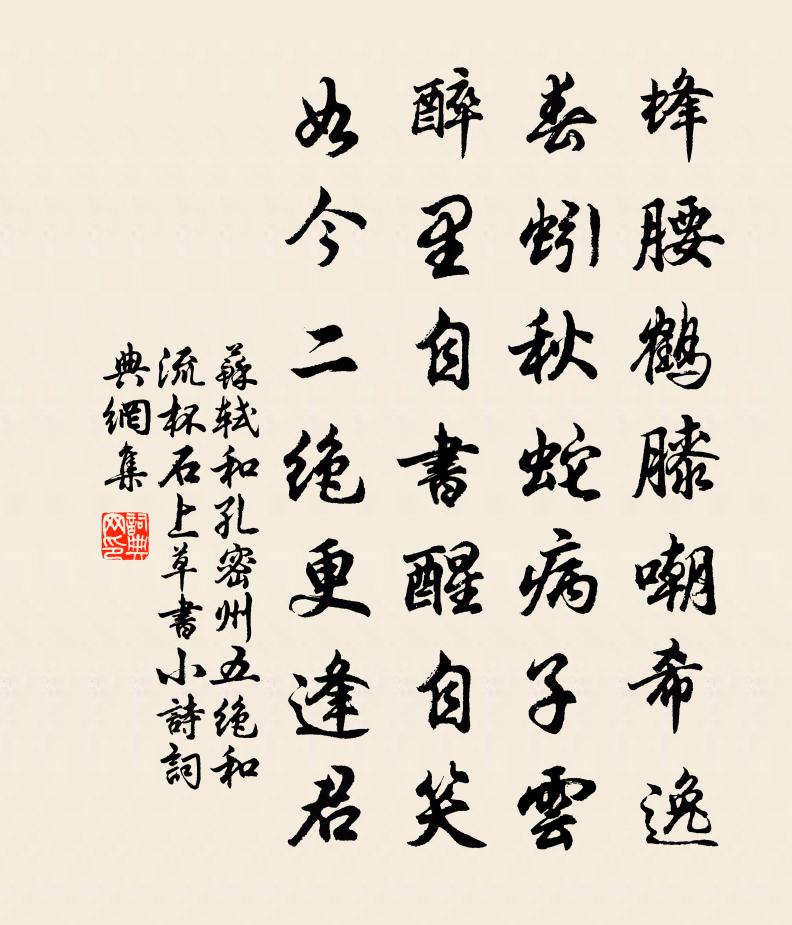 蜂腰鶴膝嘲希逸
春蚓秋蛇病子雲
醉里自書醒自笑
如今二絶更逢君
蘇軾和孔密州五絶和
流杯石上草書小詩詞
典網集
詞典網印